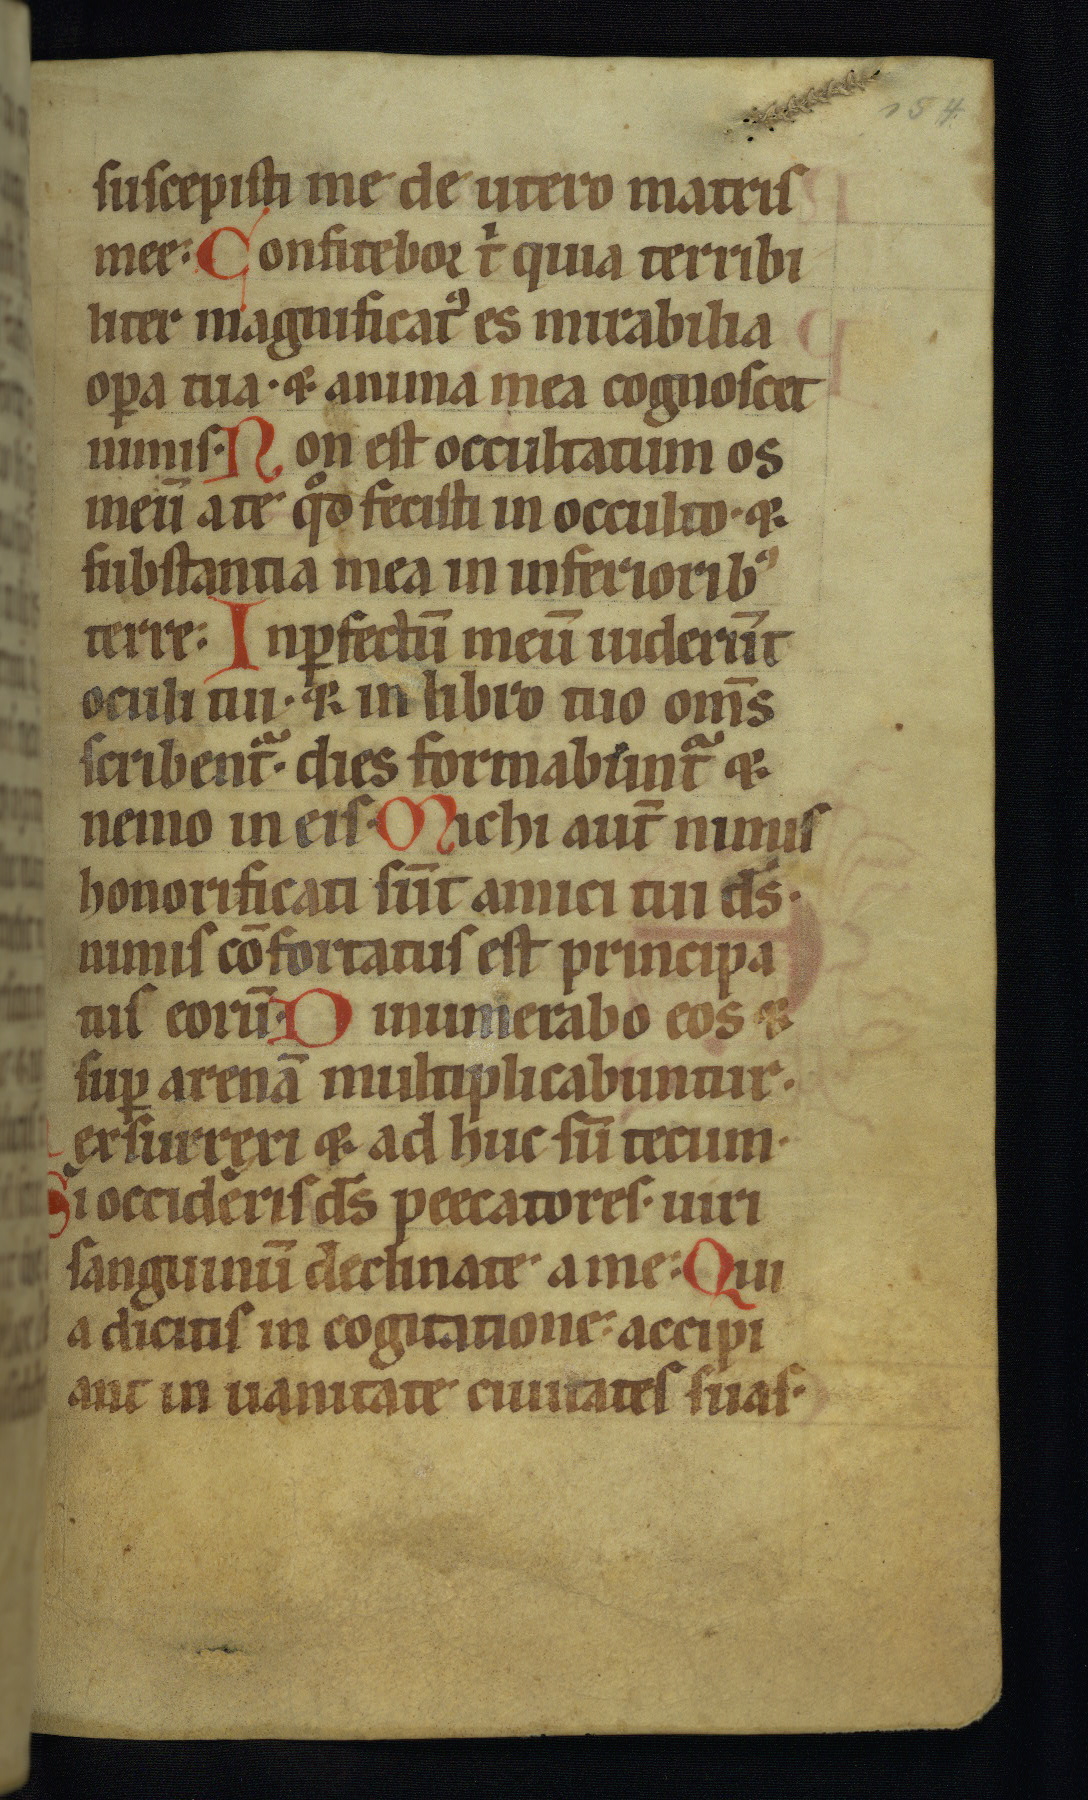 154
suscepisti me de utero matris
mee: Confitebor tͥ quia terribi
liter magnificatꝰ es mirabilia
oꝑa tua· ⁊ anima mea cognoscet
nimis· Non est occultatum os
meū a te qͦd fecisti in occulto· ⁊
substantia mea in inferioribꝰ
terre: Inꝑfectū meū uiderūt
oculi tui· ⁊ in libro tuo oms̄
scribent᷑· dies formabunt᷑ ⁊
nemo in eis· Michi aut̄ nimis
honorificati sūt amici tui ds̄·
nimis cōfortatus est principa
tus eorū· Dinumerabo eos ⁊
suꝑ arenā multiplicabuntur·
exsurrexi ⁊ ad huc sū tecum·
Si occideris ds̄ peccatores· uiri
sanguinū declinate a me: Qui
a dicitis in cogitatione: accipi
ant in uanitate ciuitates suas·